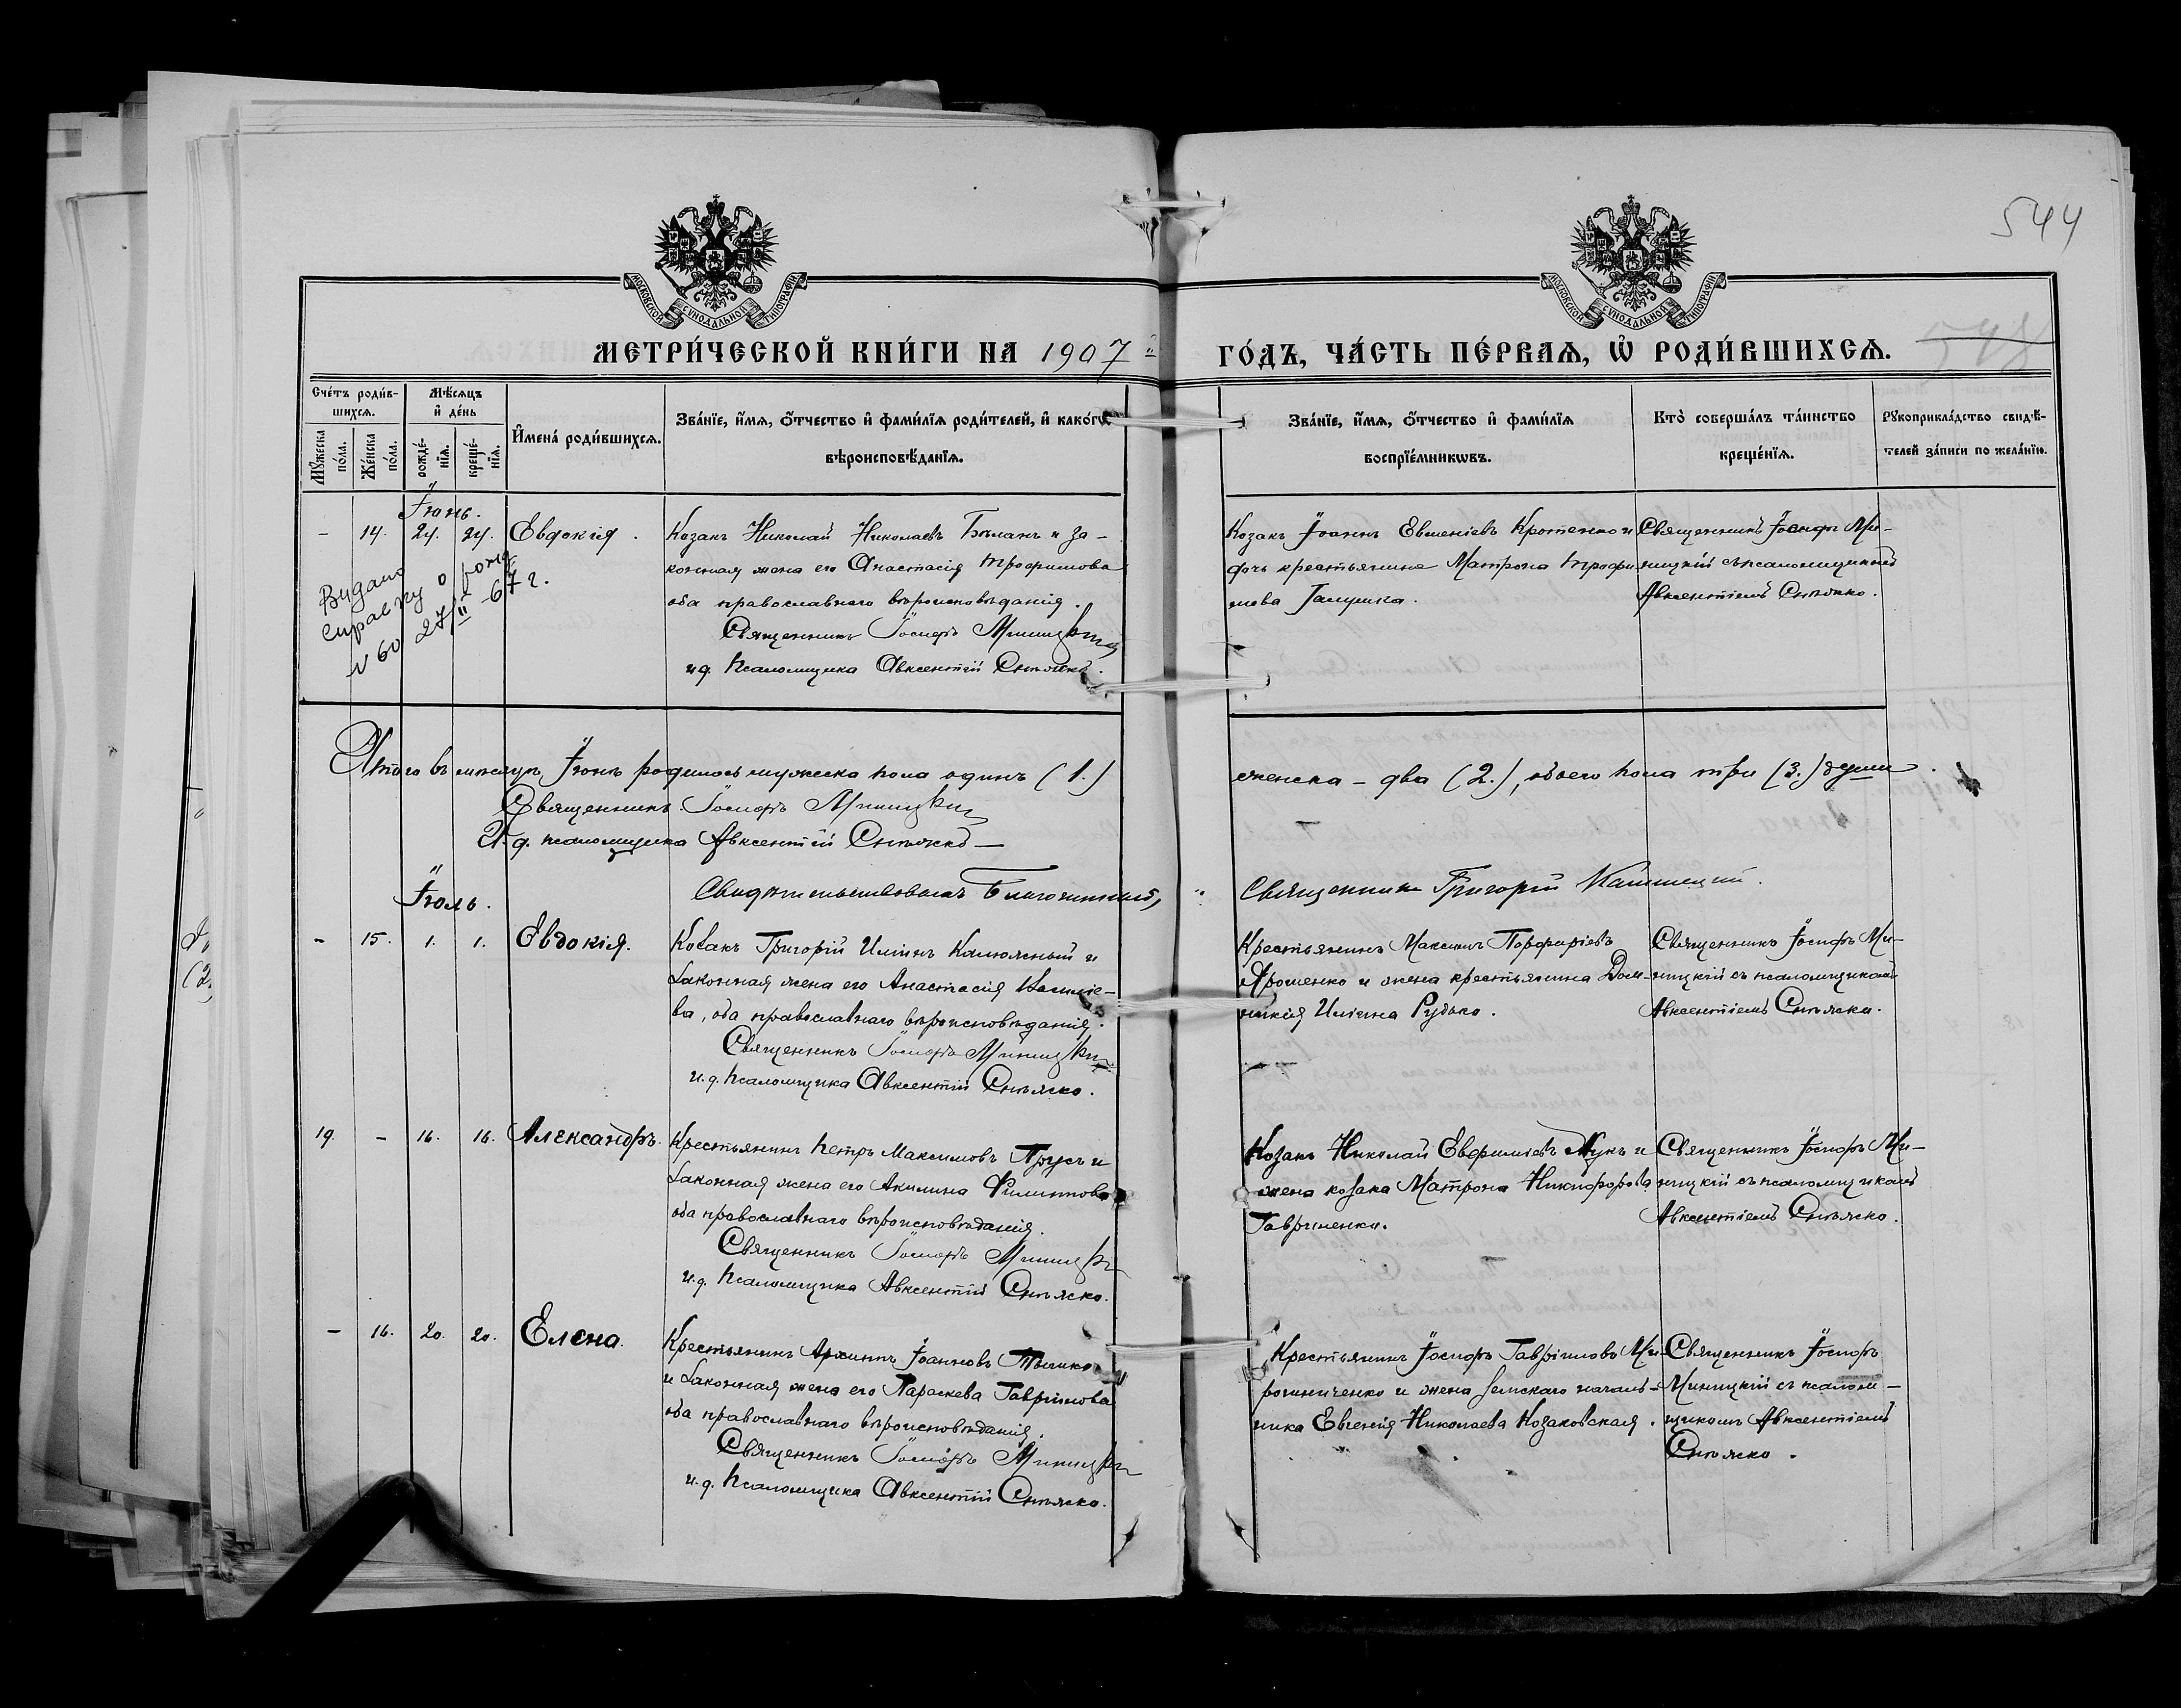 544
МОСКОВСКОЙ СѴНОДАЛЬНОЙ ТИПОГРАФІИ
МОСКОВСКОЙ СѴНОДАЛЬНОЙ ТИПОГРАФІИ
МЕТРИ́ЧЕСКОЙ КНИ́ГИ НА 1907 й
ГО́ДЪ, ЧА́СТЬ ПЕ́РВАѦ, Ѡ҆ РОДИ́ВШИХСѦ.
Сче́тъ роди́в-
шихсѧ.
Мꙋ́жеска по́ла.
Же́нска по́ла.
Мѣ́сѧцъ
и҆ де́нь
рожде́-
нїѧ.
креще́-
нїѧ.
И҆мена̀ роди́вшихсѧ.
Зва́нїе, и҆́мѧ, ѻ҆́тчество и҆ фами́лїѧ роди́телей, и҆ како́гѡ
вѣроисповѣ́данїѧ.
Зва́нїе, и҆́мѧ, ѻ҆́тчество и҆ фами́лїѧ
воспрїе́мникѡвъ.
Кто̀ соверша́лъ та́инство
креще́нїѧ.
Рꙋкоприкла́дство свидѣ́-
телей за́писи по жела́нїю.
Іюнь.
- 14. 24. 24. Евдокія.
Козакъ Николай Николаевъ Бѣланъ и за-
конная жена его Анастасія Трофимова
оба православнаго вѣроисповѣданія.
Священникъ Іосифъ Миницкій
и д. псаломщика Авксентій Снѣжко.
Козакъ Іоаннъ Евменіевъ Кротенко и
дочь крестьянина Матрона Трофи
мова Галушка.
Священникъ Іосифъ Ми-
ницкій съ псаломщикомъ
Авксентіемъ Снѣжко.
Видано
справку о рожд
N 60 27/II -67 г.
Итого въ мѣсяцѣ Іюнѣ родилось мужеска пола одинъ (1.)
женска - два (2.), обоего пола три (3.) души.
Священникъ Іосифъ Миницкій
И. д. псаломщика Авксентій Снѣжко
Свидѣтельствовалъ Благочинный,
Священникъ Григорій
Іюль.
- 15. 1. 1. Евдокія.
Козакъ Григорій Иліинъ Калюжный и
законная жена его Анастасія Василіе-
ва, оба православнаго вѣроисповѣданія.
Священникъ Іосифъ Миницкій
и. д. псаломщика Авксентій Снѣжко.
Крестьянинъ Максимъ Порфиріевъ
Ярошенко и жена крестьянина Дом-
никія Иліина Рудько.
Священникъ Іосифъ Ми-
ницкій съ псаломщикомъ
Авксентіемъ Снѣжко.
19. - 16. 16. Александръ.
Крестьянинъ Петръ Максимовъ Прусъ и
законная жена его Акилина Филиппова
оба православнаго вѣроисповѣданія.
Священникъ Іосифъ Миницкій
и. д. псаломщика Авксентій Снѣжко.
Козакъ Николай Евфиміевъ Жукъ и
жена козака Матрона Никифорова
Гавриленко.
Священникъ Іосифъ Ми-
ницкій съ псаломщикомъ
Авксентіемъ Снѣжко.
- 16. 20. 20. Елена.
Крестьянинъ Архиппъ Іоанновъ
и законная жена его Параскева Гавріилова
оба православнаго вѣроисповѣданія.
Священникъ Іосифъ Миницкій
и. д. псаломщика Авксентій Снѣжко.
Крестьянинъ Іосифъ Гавріиловъ Ми
рошниченко и жена земскаго началь-
ника Евгенія Николаева Козаковская.
Священникъ Іосифъ
Миницкій съ псалом-
щикомъ Авксентіемъ
Снѣжко.